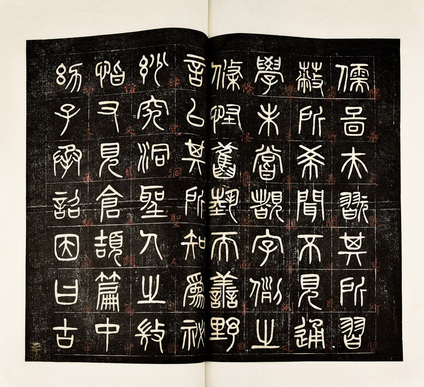 儒啚夫翫其所習
蔽所希聞不見通
學未嘗覩字例之
條怪舊埶而善野
言以其所知為祕
妙究洞聖人之微
恉又見倉頡篇中
幼子承詔因曰古